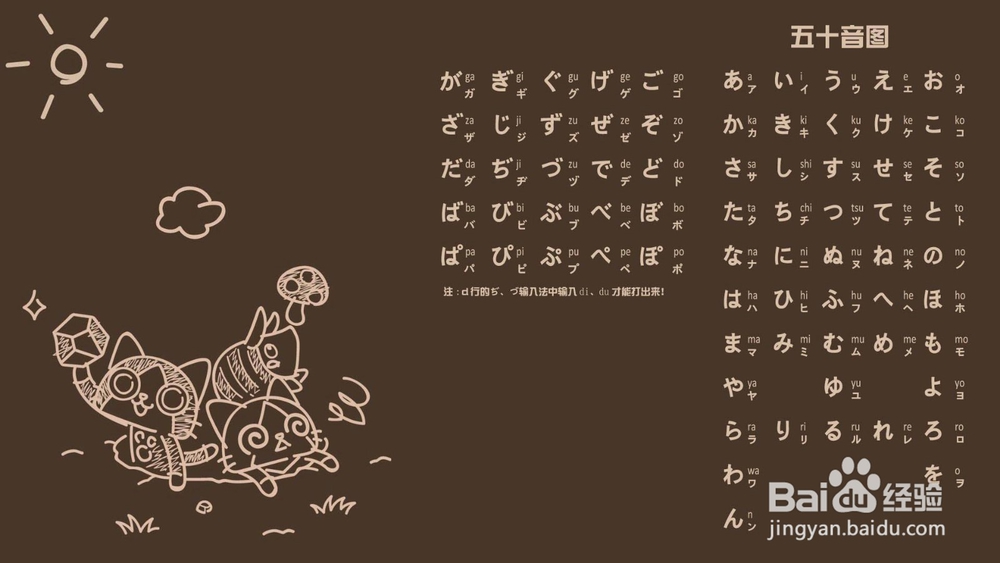 五十音图
が ga ガ ぎ gi ギ ぐ gu グ げ ge ゲ ご go ゴ
ざ za ザ じ ji ジ ず zu ズ ぜ ze ゼ ぞ zo ゾ
だ da ダ ぢ ji ヂ づ zu ヅ で de デ ど do ド
ば ba バ び bi ビ ぶ bu ブ べ be ベ ぼ bo ボ
ぱ pa パ ぴ pi ピ ぷ pu プ ぺ pe ペ ぽ po ポ
注:d行的ぢ、づ输入法中输入di、du才能打出来!
あ a ア い i イ う u ウ え e エ お o オ
か ka カ き ki キ く ku ク け ke ケ こ ko コ
さ sa サ し shi シ す su ス せ se セ そ so ソ
た ta タ ち chi チ つ tsu ツ て te テ と to ト
な na ナ に ni ニ ぬ nu ヌ ね ne ネ の no ノ
は ha ハ ひ hi ヒ ふ hu フ へ he ヘ ほ ho ホ
ま ma マ み mi ミ む mu ム め me メ も mo モ
や ya ヤ ゆ yu ユ よ yo ヨ
ら ra ラ り ri リ る ru ル れ re レ ろ ro ロ
わ wa ワ を o ヲ
ん n ン
Baidu经验
jingyan.baidu.com